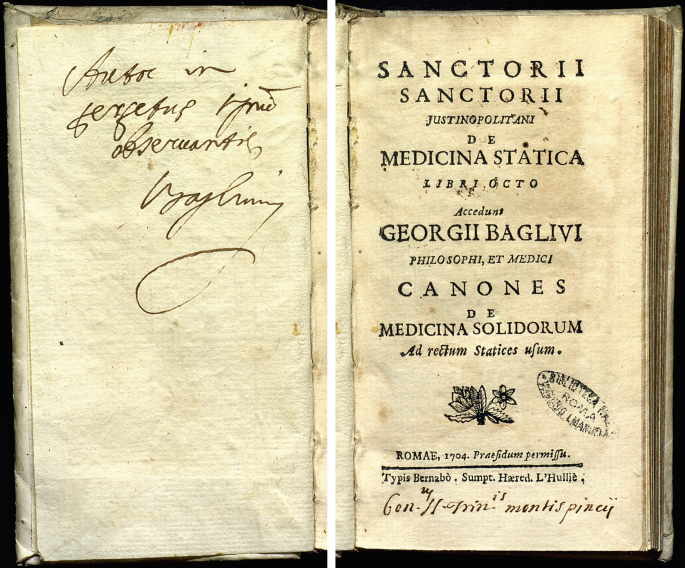 Autor in
perpetuũ
observantiæ
Baglivus
SANCTORII
SANCTORII
JUSTINOPOLITANI
DE
MEDICINA STATICA
LIBRI OCTO
Accedunt
GEORGII BAGLIVI
PHILOSOPHI, ET MEDICI
CANONES
DE
MEDICINA SOLIDORUM
Ad rectum Statices uſum.
BIBLIOTECA NAZ.
ROMA
VITTORIO EMANUELE
ROMAE, 1704. Præſidum permiſſu.
Typis Bernabò. Sumpt. Hæred. L'Hulliè.
Con. SS. Trin.is montis pincij